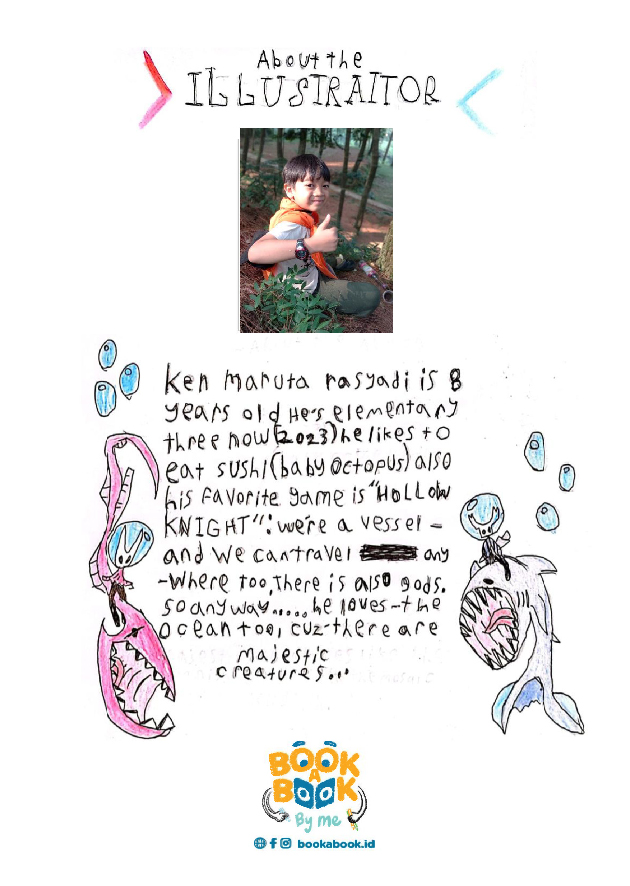 About the
ILLUSTRAITOR
Ken Maruta rasyadi is 8
years old He's elementary
three now(2023)he likes to
eat sushi(baby octopus)also
his favorite game is "HOLLOW
KNIGHT": we're a vessel -
and we cantravel any
-where too, There is also gods.
so anyway..... he loves the
ocean too, cuz there are
majestic
creatures...
BOOK
A
BOOK
By me
bookabook.id